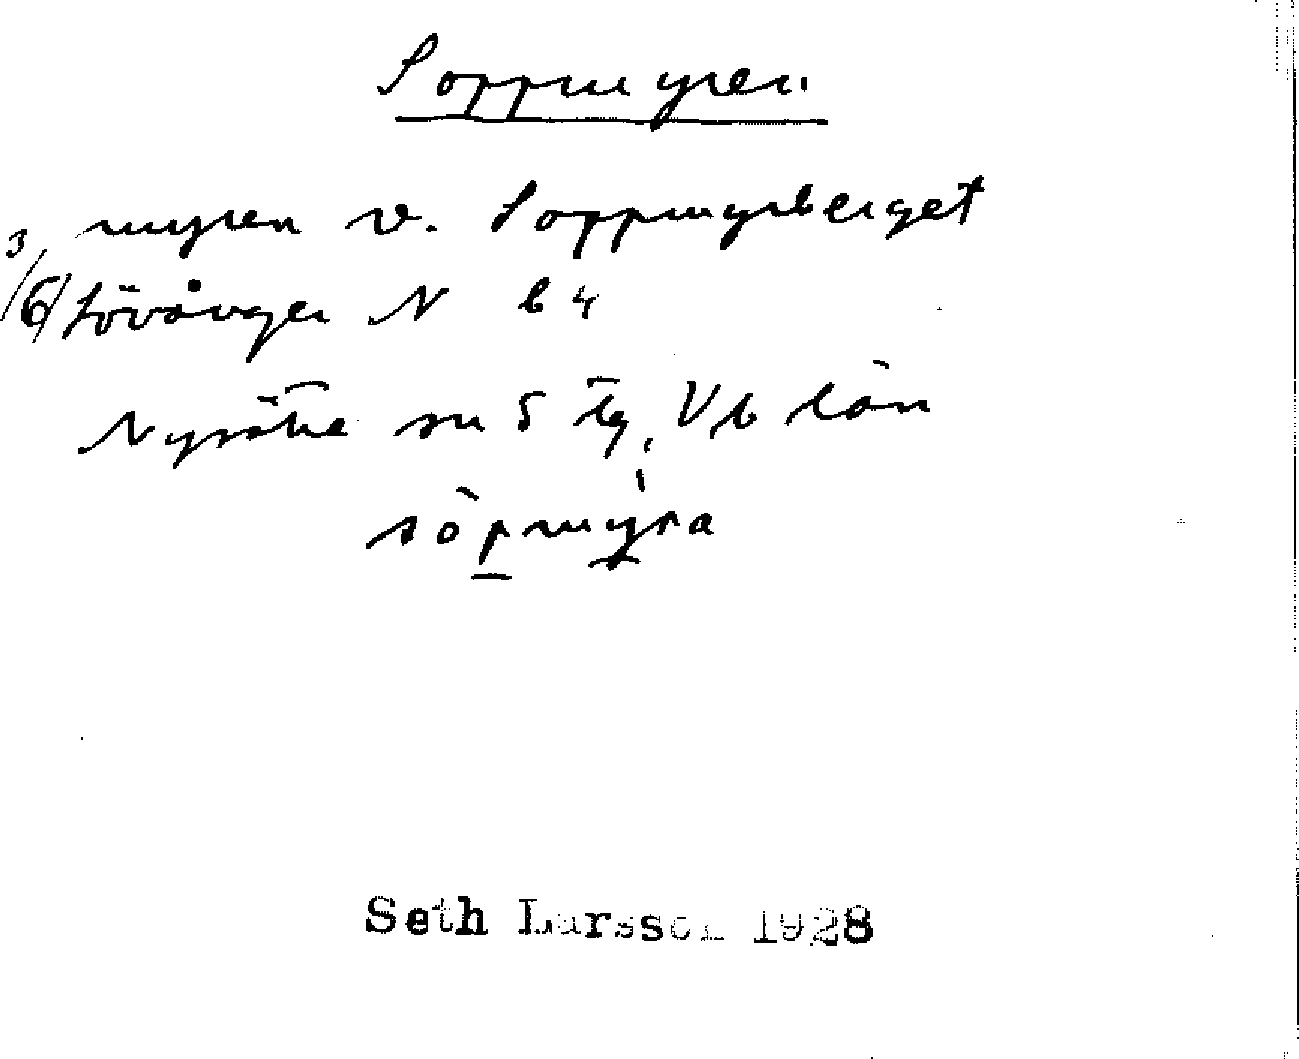 Soppmyren
myren v. Soppmyrberget
3/6 Lövånger N b 4
Nysätra sn S tg, Vb län
sòpmyra
Seth Larsson 1928